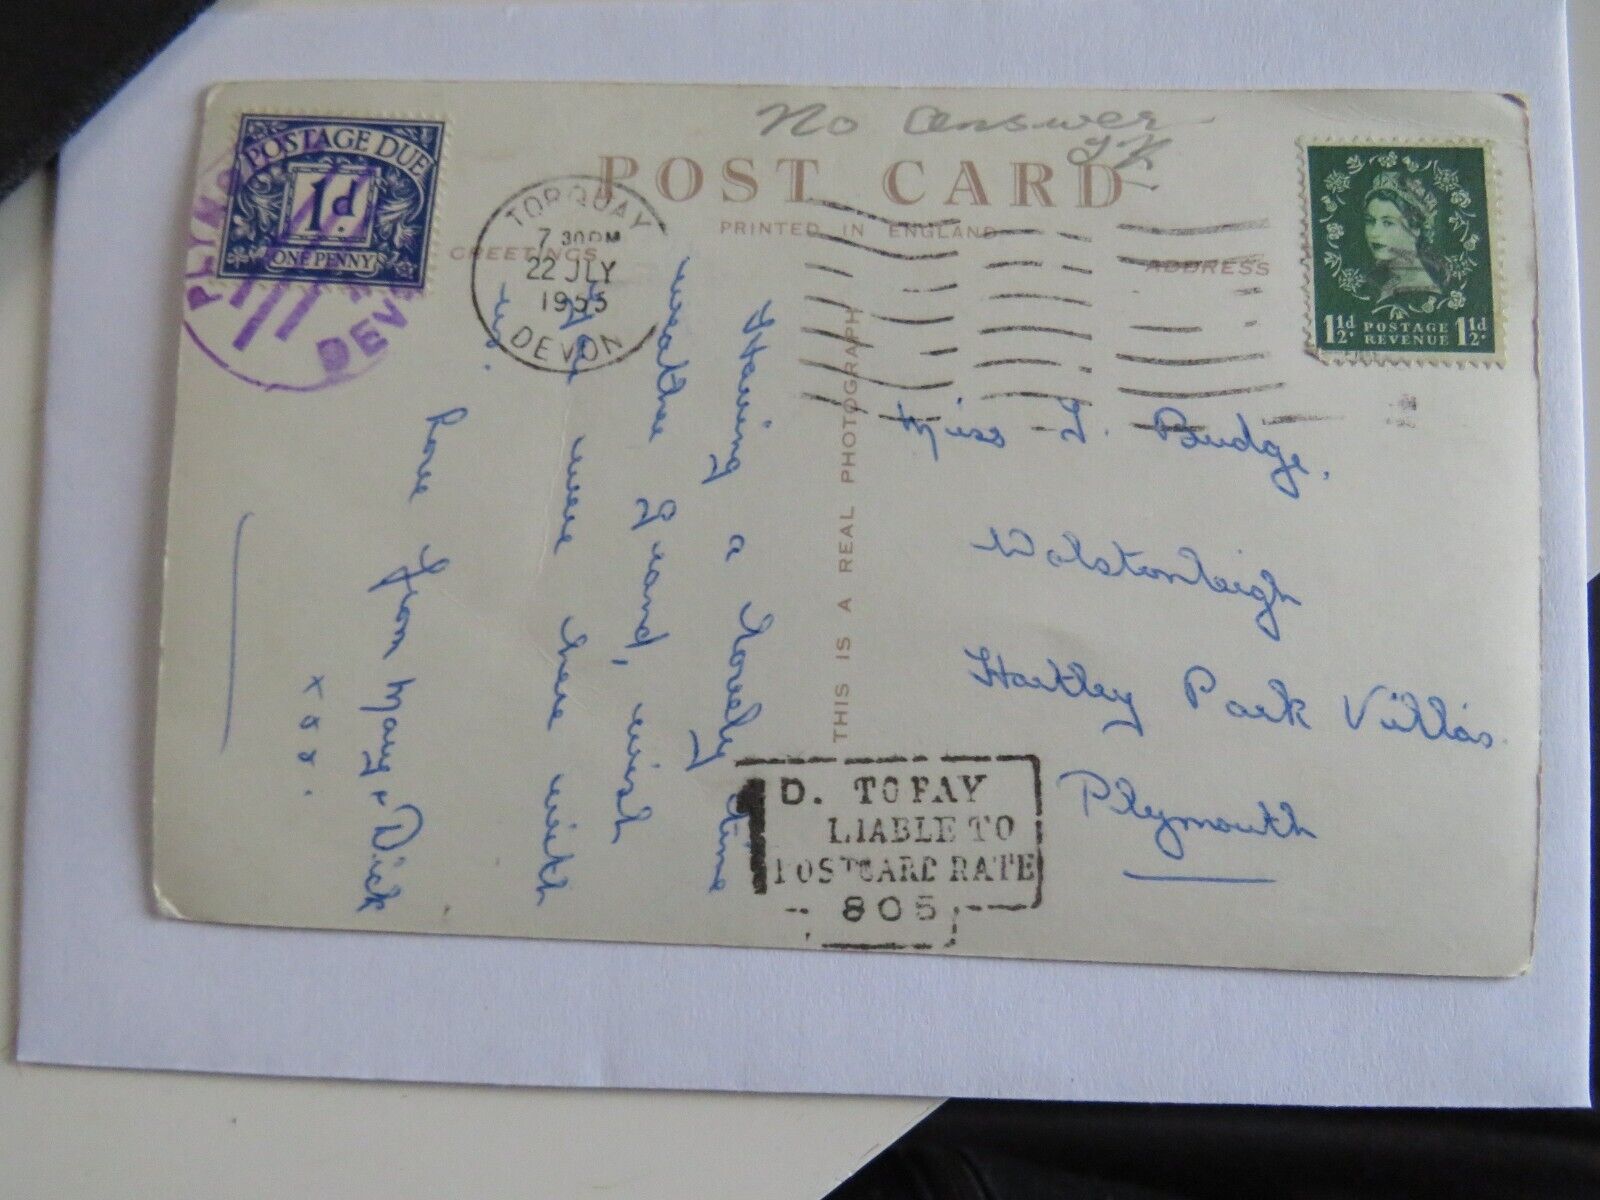 No answer
POST CARD
PRINTED IN ENGLAND
GREETINGS
ADDRESS
POSTAGE DUE
1d.
ONE PENNY
PLYM
DEV
TORQUAY
7 30 PM
22 JLY
1955
DEVON
1½d. POSTAGE REVENUE 1½d.
THIS IS A REAL PHOTOGRAPH
Having a lovely time
weather grand, wish
you were here with
us.
love from Mary + Dick
Miss I. Budge,
Wolstonleigh
Hartley Park Villas
Plymouth
1D. TO PAY
LIABLE TO
POSTCARD RATE
805